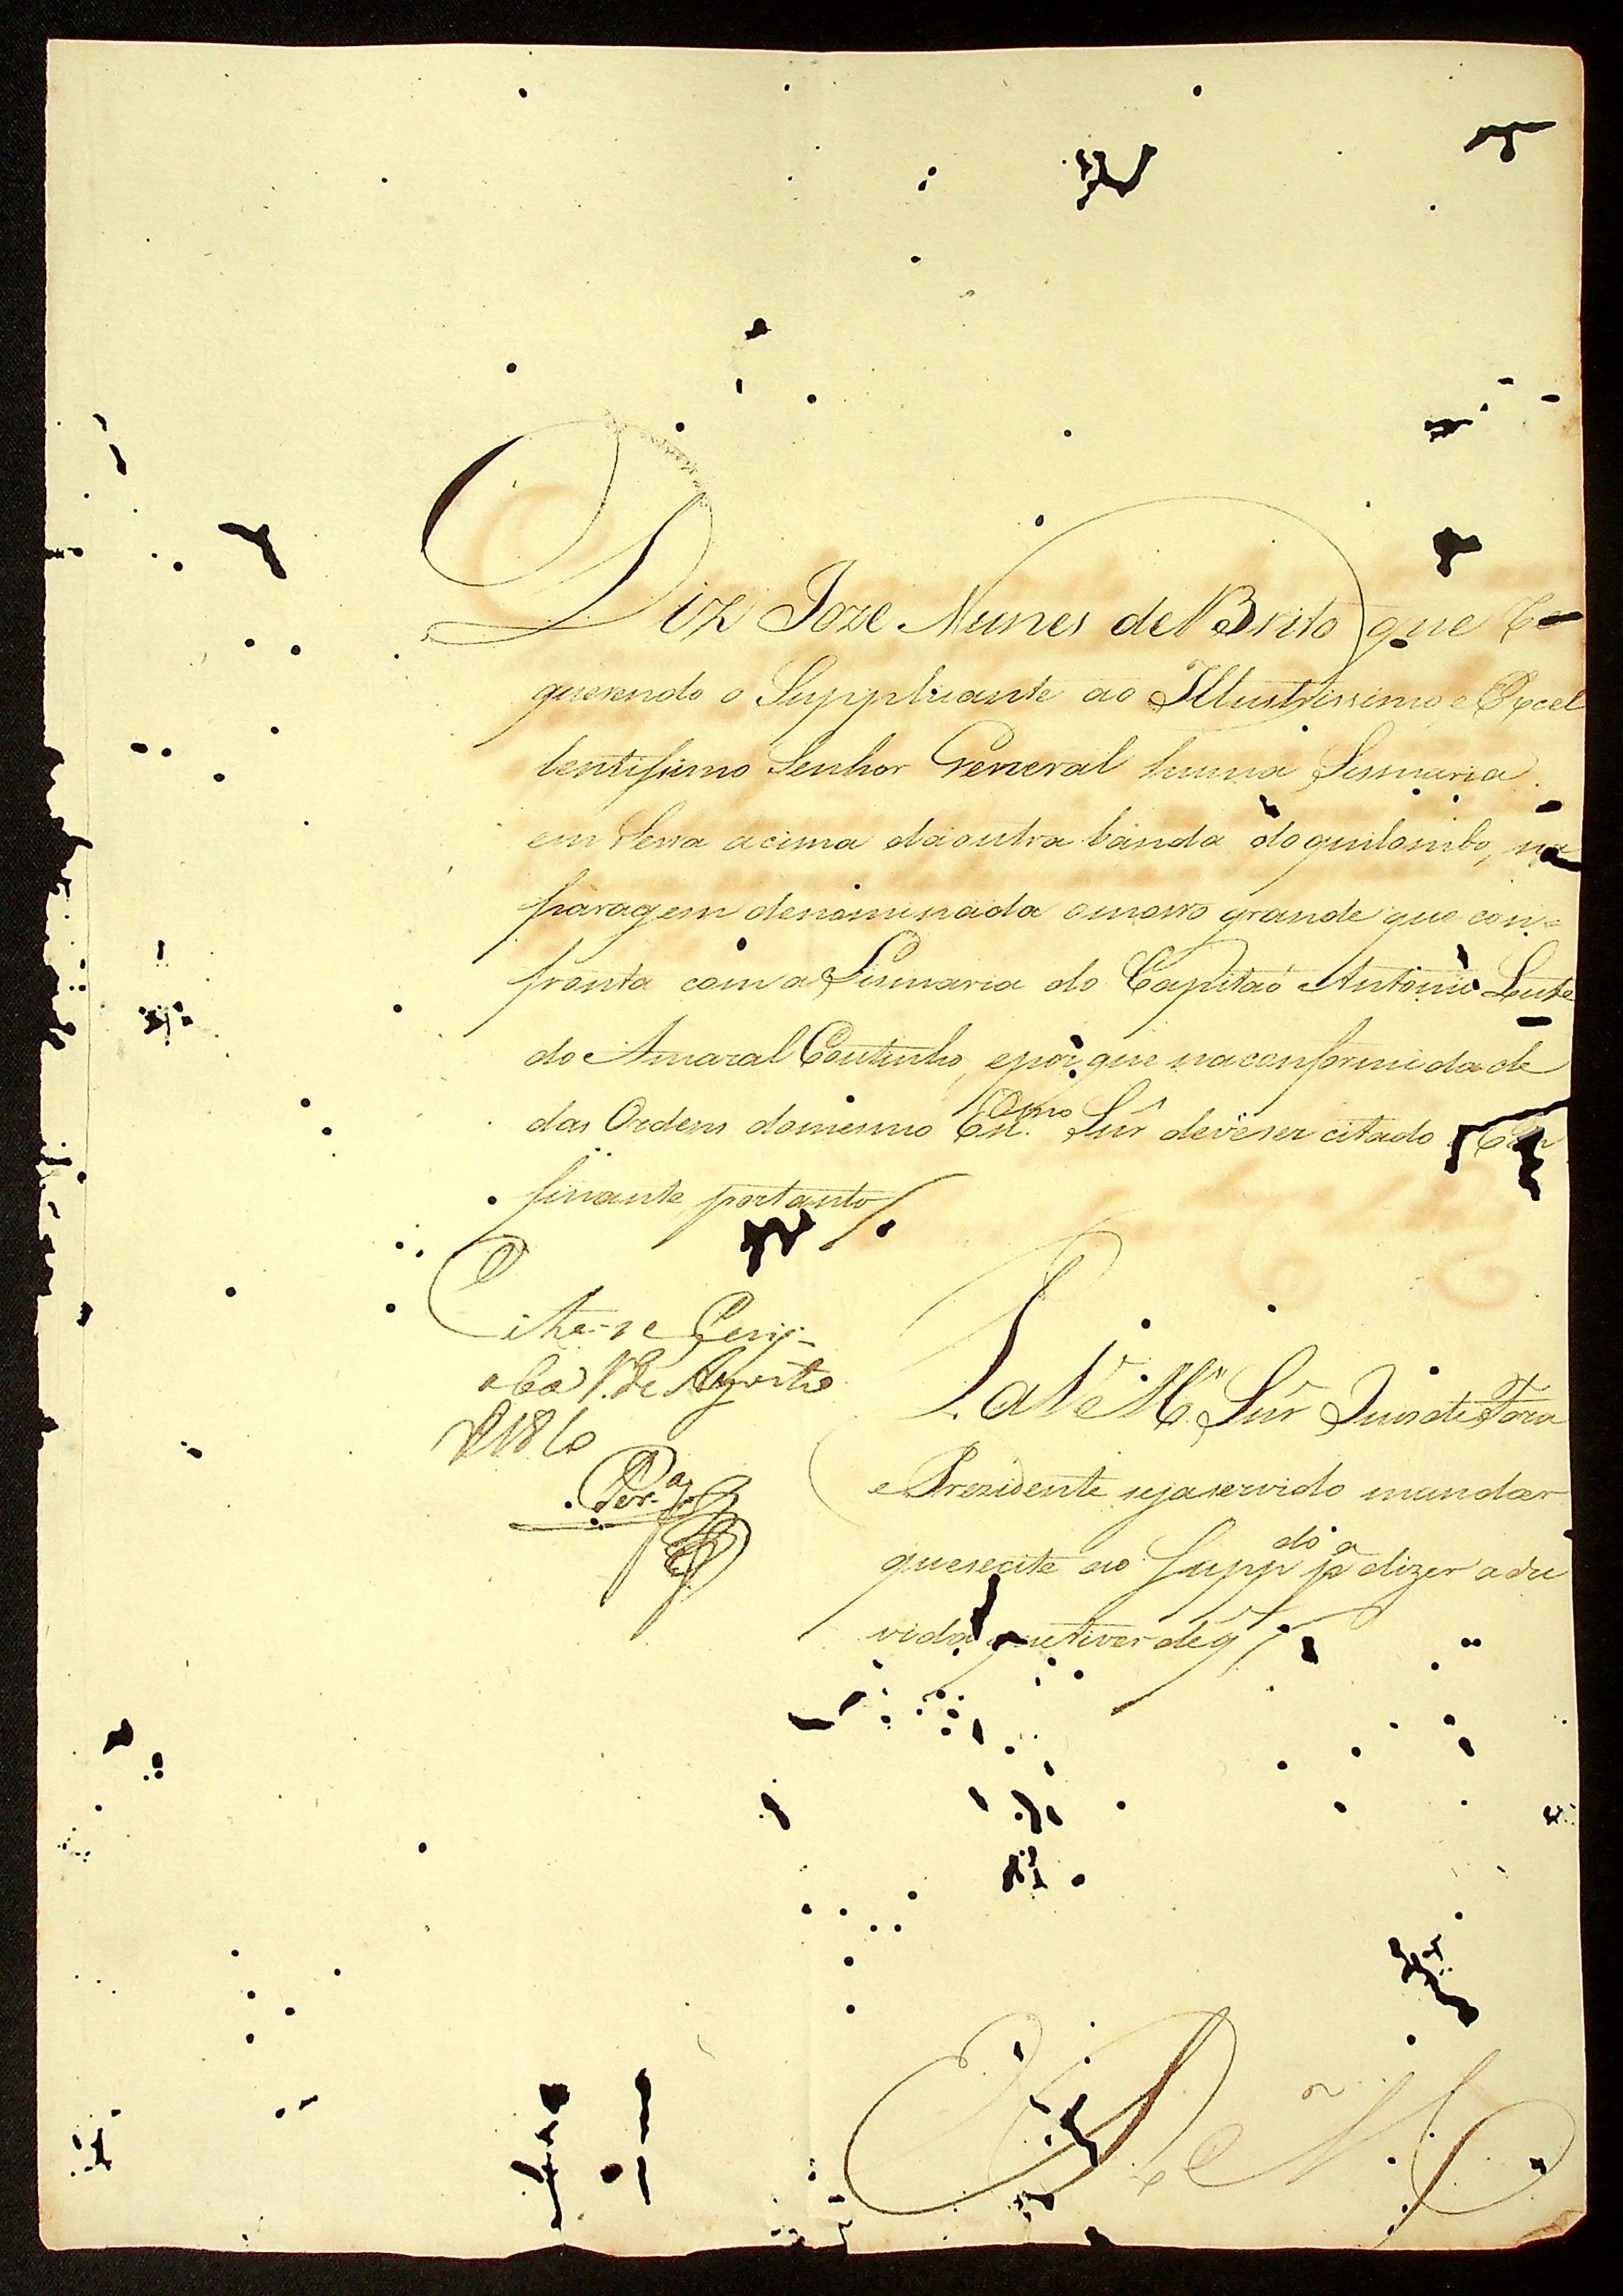 Diz Joze Nunes de Brito que Re
querendo o Supplicante ao Illustrissimo, e Excel
lentissimo Senhor General huma Sesmaria
em Serra acima da outra banda do quilombo, na
paragem denominada o morro grande que con=
fronta com a Sesmaria do Capitaõ Antonio Leite
do Amaral Coutinho, e por que na conformidade
das Ordens do mesmo Ex.mo Snr̃ deve ser citado o Con
finante, portanto
Cite-se
1.º de Agosto
Per.ª
P. a V.e M.ce Snr̃ Juis de Fora
e Prezidente seja servido mandar
que se cite ao Supp.do p.ª dizer a du
vida que tiver de q̃
E R M.ce